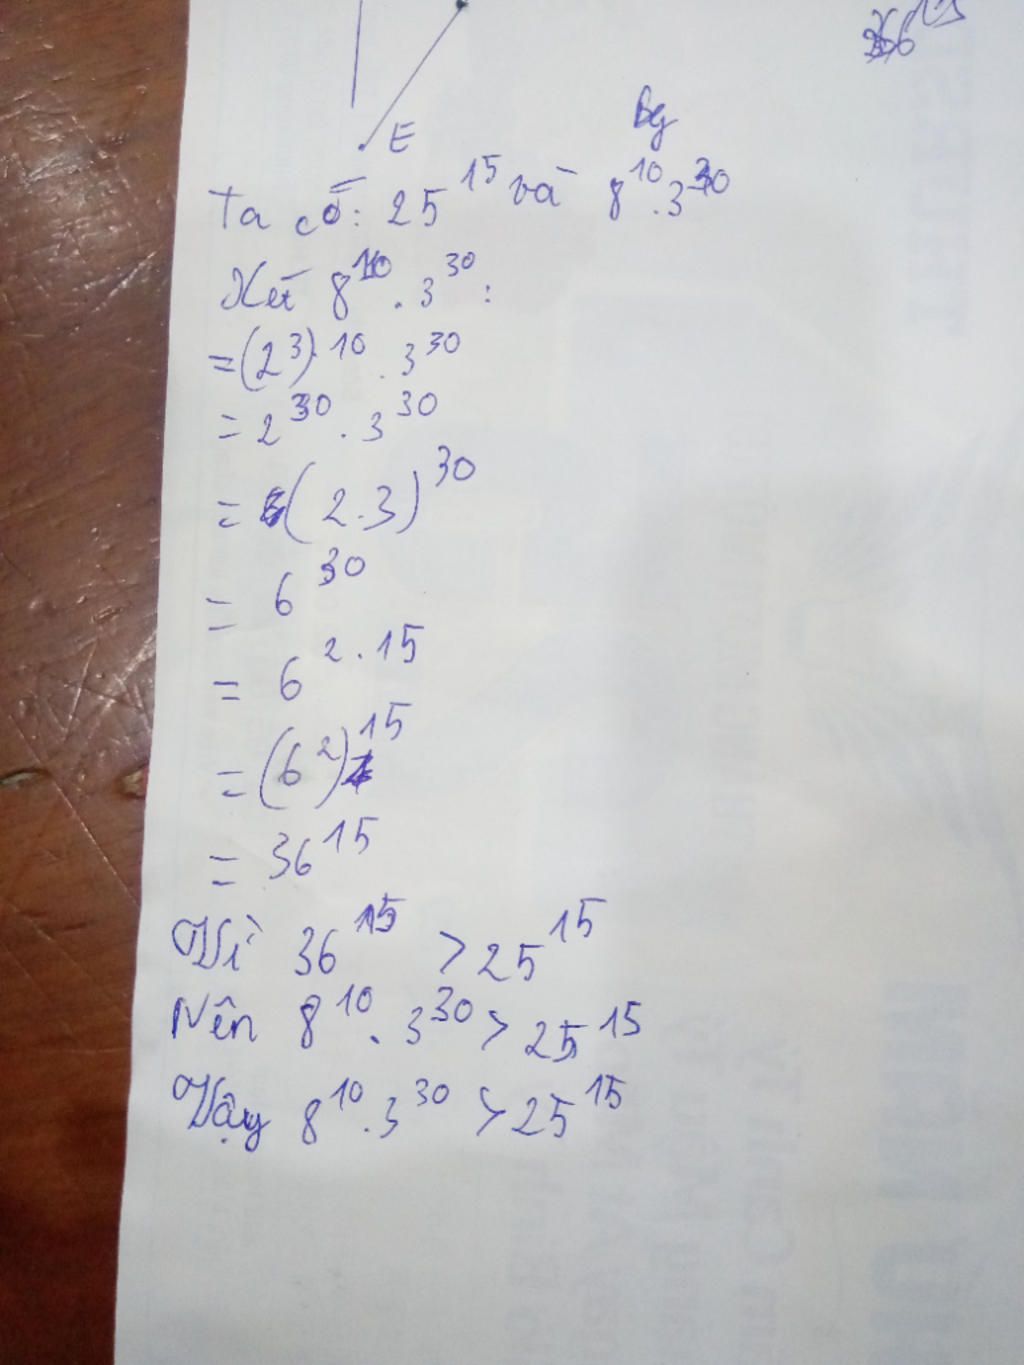 36¹⁵
E
Bg
Ta có: 25¹⁵ và 8¹⁰.3³⁰
Xét 8¹⁰.3³⁰:
=(2³)·¹⁰.3³⁰
= 2³⁰.3³⁰
= (2.3)³⁰
= 6³⁰
= 6²·¹⁵
= (6²)¹⁵
= 36¹⁵
Vì 36¹⁵ > 25¹⁵
Nên 8¹⁰.3³⁰ > 25¹⁵
Vậy 8¹⁰.3³⁰ > 25¹⁵